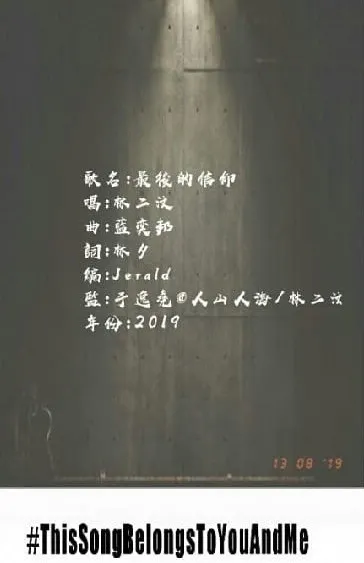 歌名:最後的信仰
唱:林二汶
曲:藍奕邦
詞:林夕
編:Jerald
監:于逸堯@人山人海/林二汶
年份:2019
13 08 '19
#ThisSongBelongsToYouAndMe